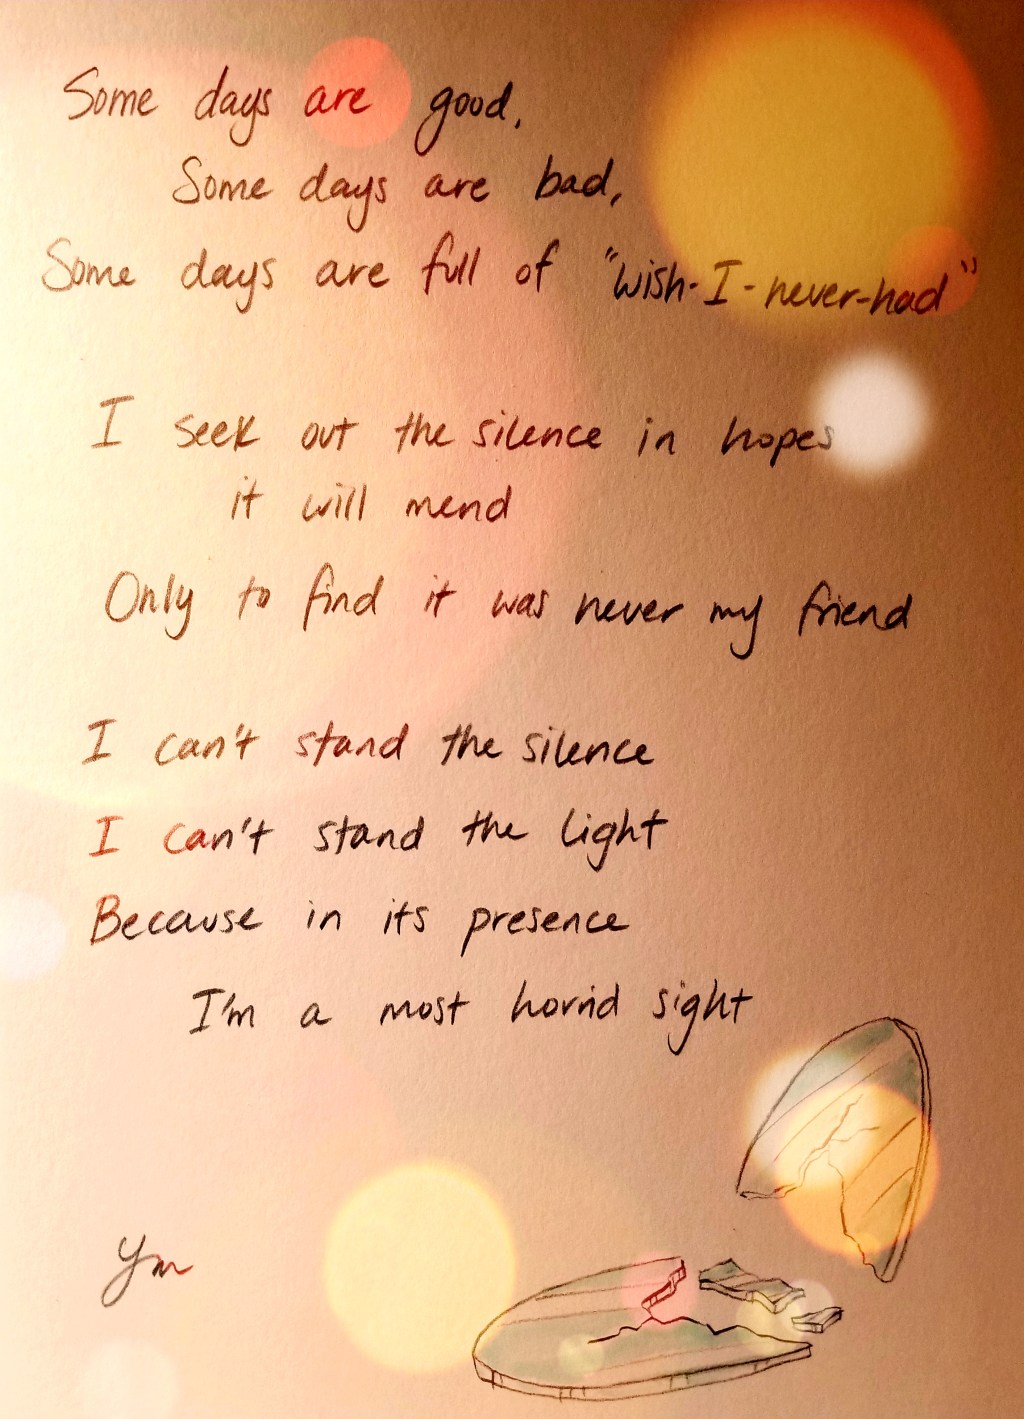 Some days are good,
Some days are bad,
Some days are full of "wish-I-never-had"
I seek out the silence in hopes
it will mend
Only to find it was never my friend
I can't stand the silence
I can't stand the light
Because in its presence
I'm a most horrid sight
Ym